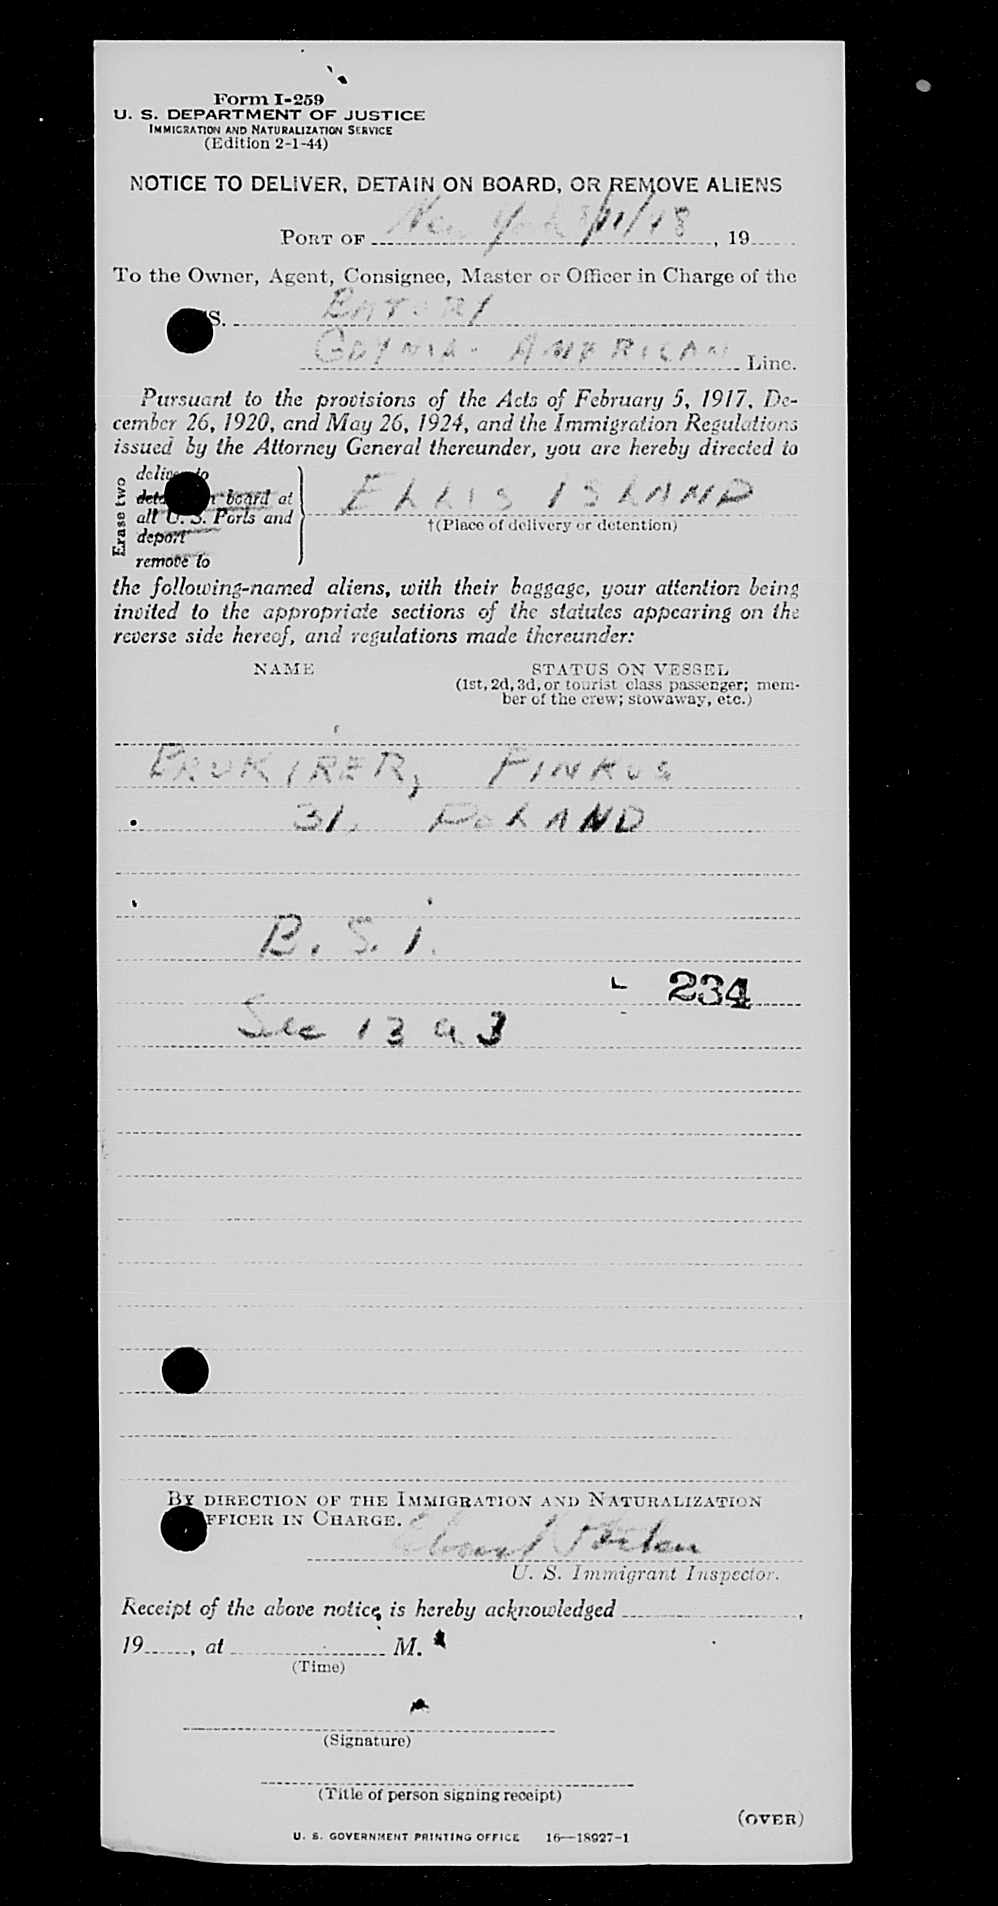 Form I-259
U. S. DEPARTMENT OF JUSTICE
IMMIGRATION AND NATURALIZATION SERVICE
(Edition 2-1-44)
NOTICE TO DELIVER, DETAIN ON BOARD, OR REMOVE ALIENS
PORT OF New York /11/48, 19
To the Owner, Agent, Consignee, Master or Officer in Charge of the
S. BATORY
GDYNIA-AMERICAN Line.
Pursuant to the provisions of the Acts of February 5, 1917, De-
cember 26, 1920, and May 26, 1924, and the Immigration Regulations
issued by the Attorney General thereunder, you are hereby directed to
Erase two
deliver to
detain on board at
all U. S. Ports and
deport
remove to
ELLIS ISLAND
†(Place of delivery or detention)
the following-named aliens, with their baggage, your attention being
invited to the appropriate sections of the statutes appearing on the
reverse side hereof, and regulations made thereunder:
NAME STATUS ON VESSEL
(1st, 2d, 3d, or tourist class passenger; mem-
ber of the crew; stowaway, etc.)
BRUKIRER, PINKUS
31, POLAND
B.S.I.
L 234
Sec 13 a 3
BY DIRECTION OF THE IMMIGRATION AND NATURALIZATION
OFFICER IN CHARGE.
U. S. Immigrant Inspector.
Receipt of the above notice is hereby acknowledged ,
19 , at M.
(Time)
(Signature)
(Title of person signing receipt)
(OVER)
U. S. GOVERNMENT PRINTING OFFICE 16—18927-1